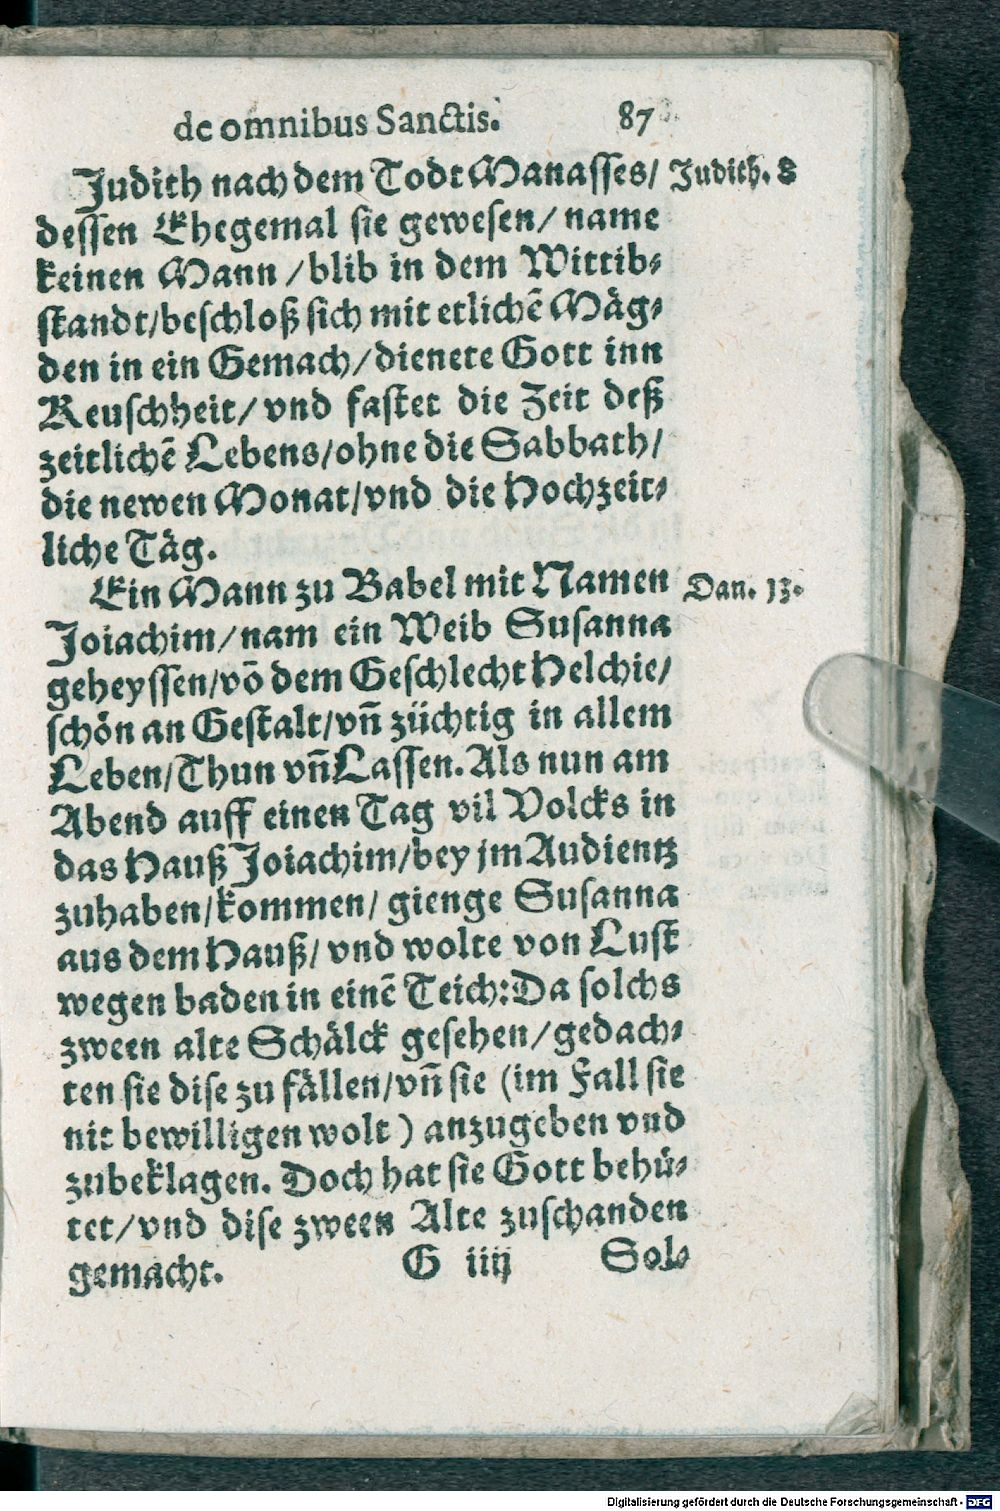 de omnibus Sanctis. 87
Judith nach dem Todt Manasses/ Judith. 8
dessen Ehegemal sie gewesen/ name
keinen Mann /blib in dem Wittib⸗
standt/beschloß sich mit etlichẽ Mäg⸗
den in ein Gemach/dienete Gott inn
Keuschheit/ vnd fastet die Zeit deß
zeitlichẽ Lebens/ohne die Sabbath/
die newen Monat/vnd die Hochzeit⸗
liche Täg.
Ein Mann zu Babel mit Namen Dan. 13.
Joiachim/nam ein Weib Susanna
geheyssen/võ dem Geschlecht Helchie/
schön an Gestalt/vñ züchtig in allem
Leben/Thun vñ Lassen. Als nun am
Abend auff einen Tag vil Volcks in
das Hauß Joiachim/bey jm Audientz
zuhaben/kommen/ gienge Susanna
aus dem Hauß/ vnd wolte von Lust
wegen baden in einẽ Teich: Da solchs
zween alte Schälck gesehen/gedach⸗
ten sie dise zu fällen/vñ sie (im Fall sie
nit bewilligen wolt) anzugeben vnd
zubeklagen. Doch hat sie Gott behü⸗
tet/vnd dise zween Alte zuschanden
gemacht. G iiij Sol⸗
Digitalisierung gefördert durch die Deutsche Forschungsgemeinschaft - DFG